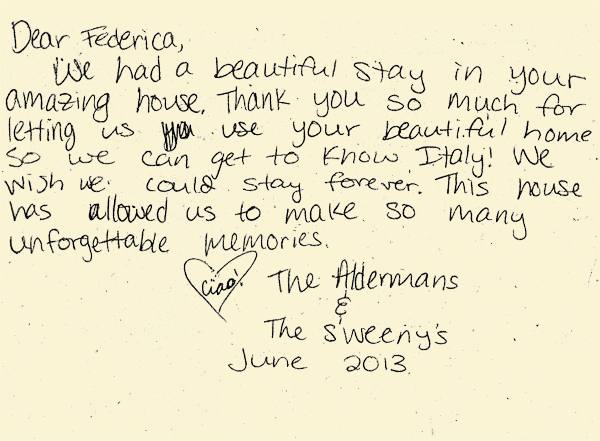 Dear Federica,
We had a beautiful stay in your
amazing house. Thank you so much for
letting us use your beautiful home
so we can get to know Italy! We
wish we could stay forever. This house
has allowed us to make so many
unforgettable memories.
ciao! The Aldermans
&
The Sweeny's
June 2013.